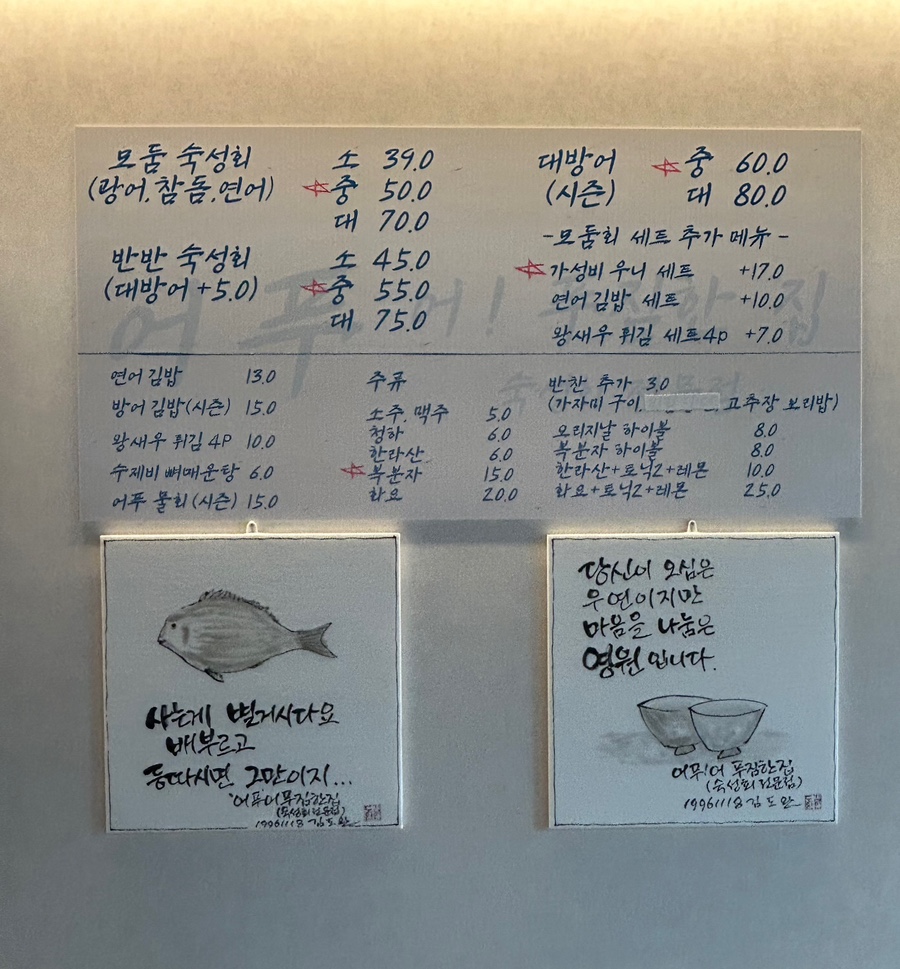 모둠 숙성회 소 39.0
(광어.참돔.연어) ☆중 50.0
대 70.0
반반 숙성회 소 45.0
(대방어+5.0) ☆중 55.0
대 75.0
대방어 ☆중 60.0
(시즌) 대 80.0
-모둠회 세트 추가 메뉴-
☆가성비 우니 세트 +17.0
연어김밥 세트 +10.0
왕새우 튀김 세트4p +7.0
어푸어! 푸짐한 집
연어김밥 13.0
방어 김밥(시즌) 15.0
왕새우 튀김 4P 10.0
수제비 뼈매운탕 6.0
어푸 물회(시즌) 15.0
주류
소주.맥주 5.0
청하 6.0
한라산 6.0
☆복분자 15.0
화요 20.0
반찬 추가 3.0
(가자미 구이, 고추장 보리밥)
오리지날 하이볼 8.0
복분자 하이볼 8.0
한라산+토닉2+레몬 10.0
화요+토닉2+레몬 25.0
사는게 별거시다요
배부르고
등따시면 그만이지...
"어푸!어 푸짐한집
(숙성회전문점)
19961118 김도완
당신이 오심은
우연이지만
마음을 나눔은
영원입니다.
어푸!어 푸짐한집
(숙성회전문점)
19961118 김도완